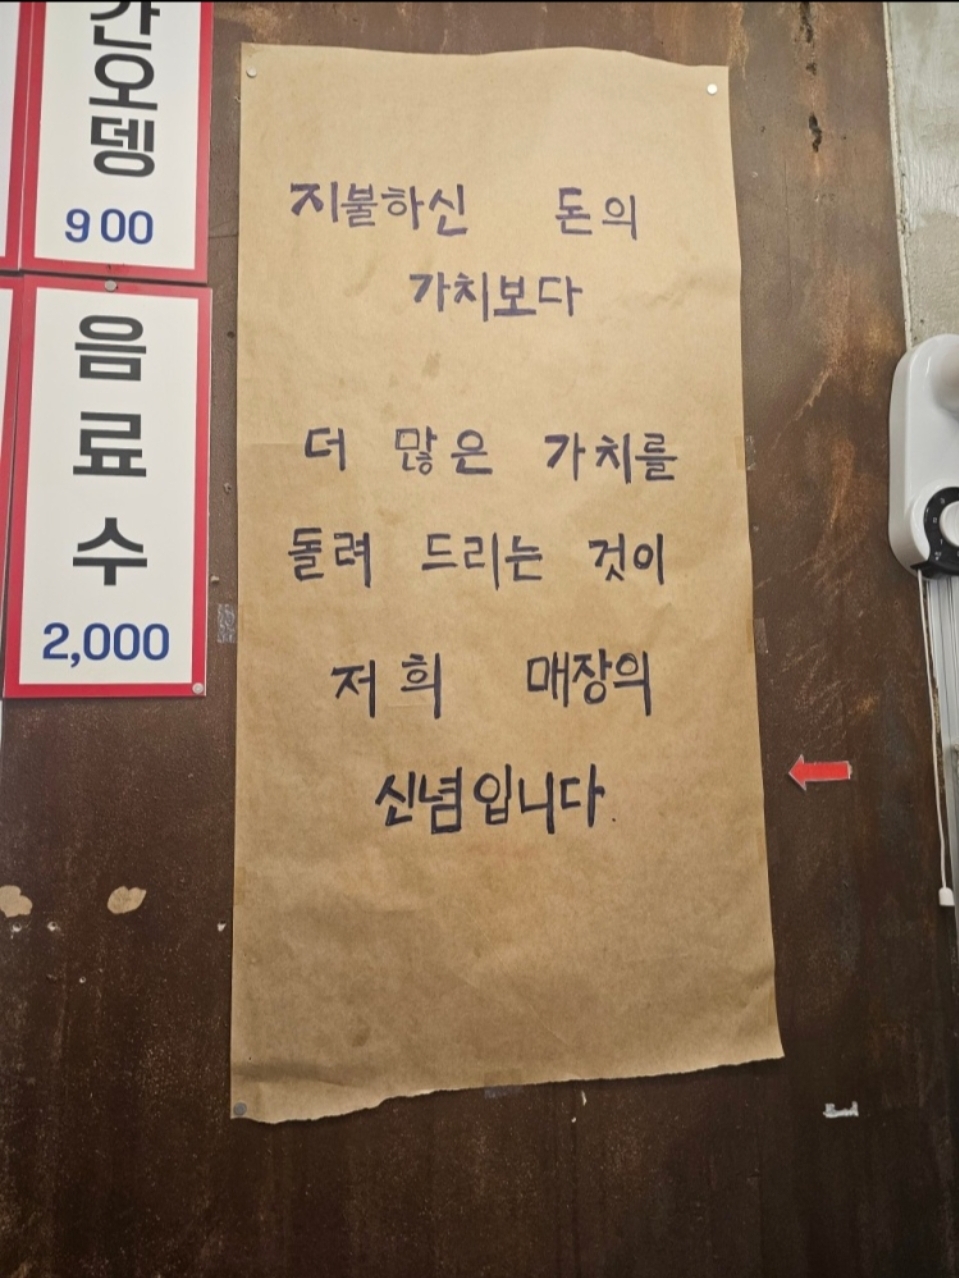 간오뎅
900
음료수
2,000
지불하신 돈의
가치보다
더 많은 가치를
돌려 드리는 것이
저희 매장의
신념입니다.